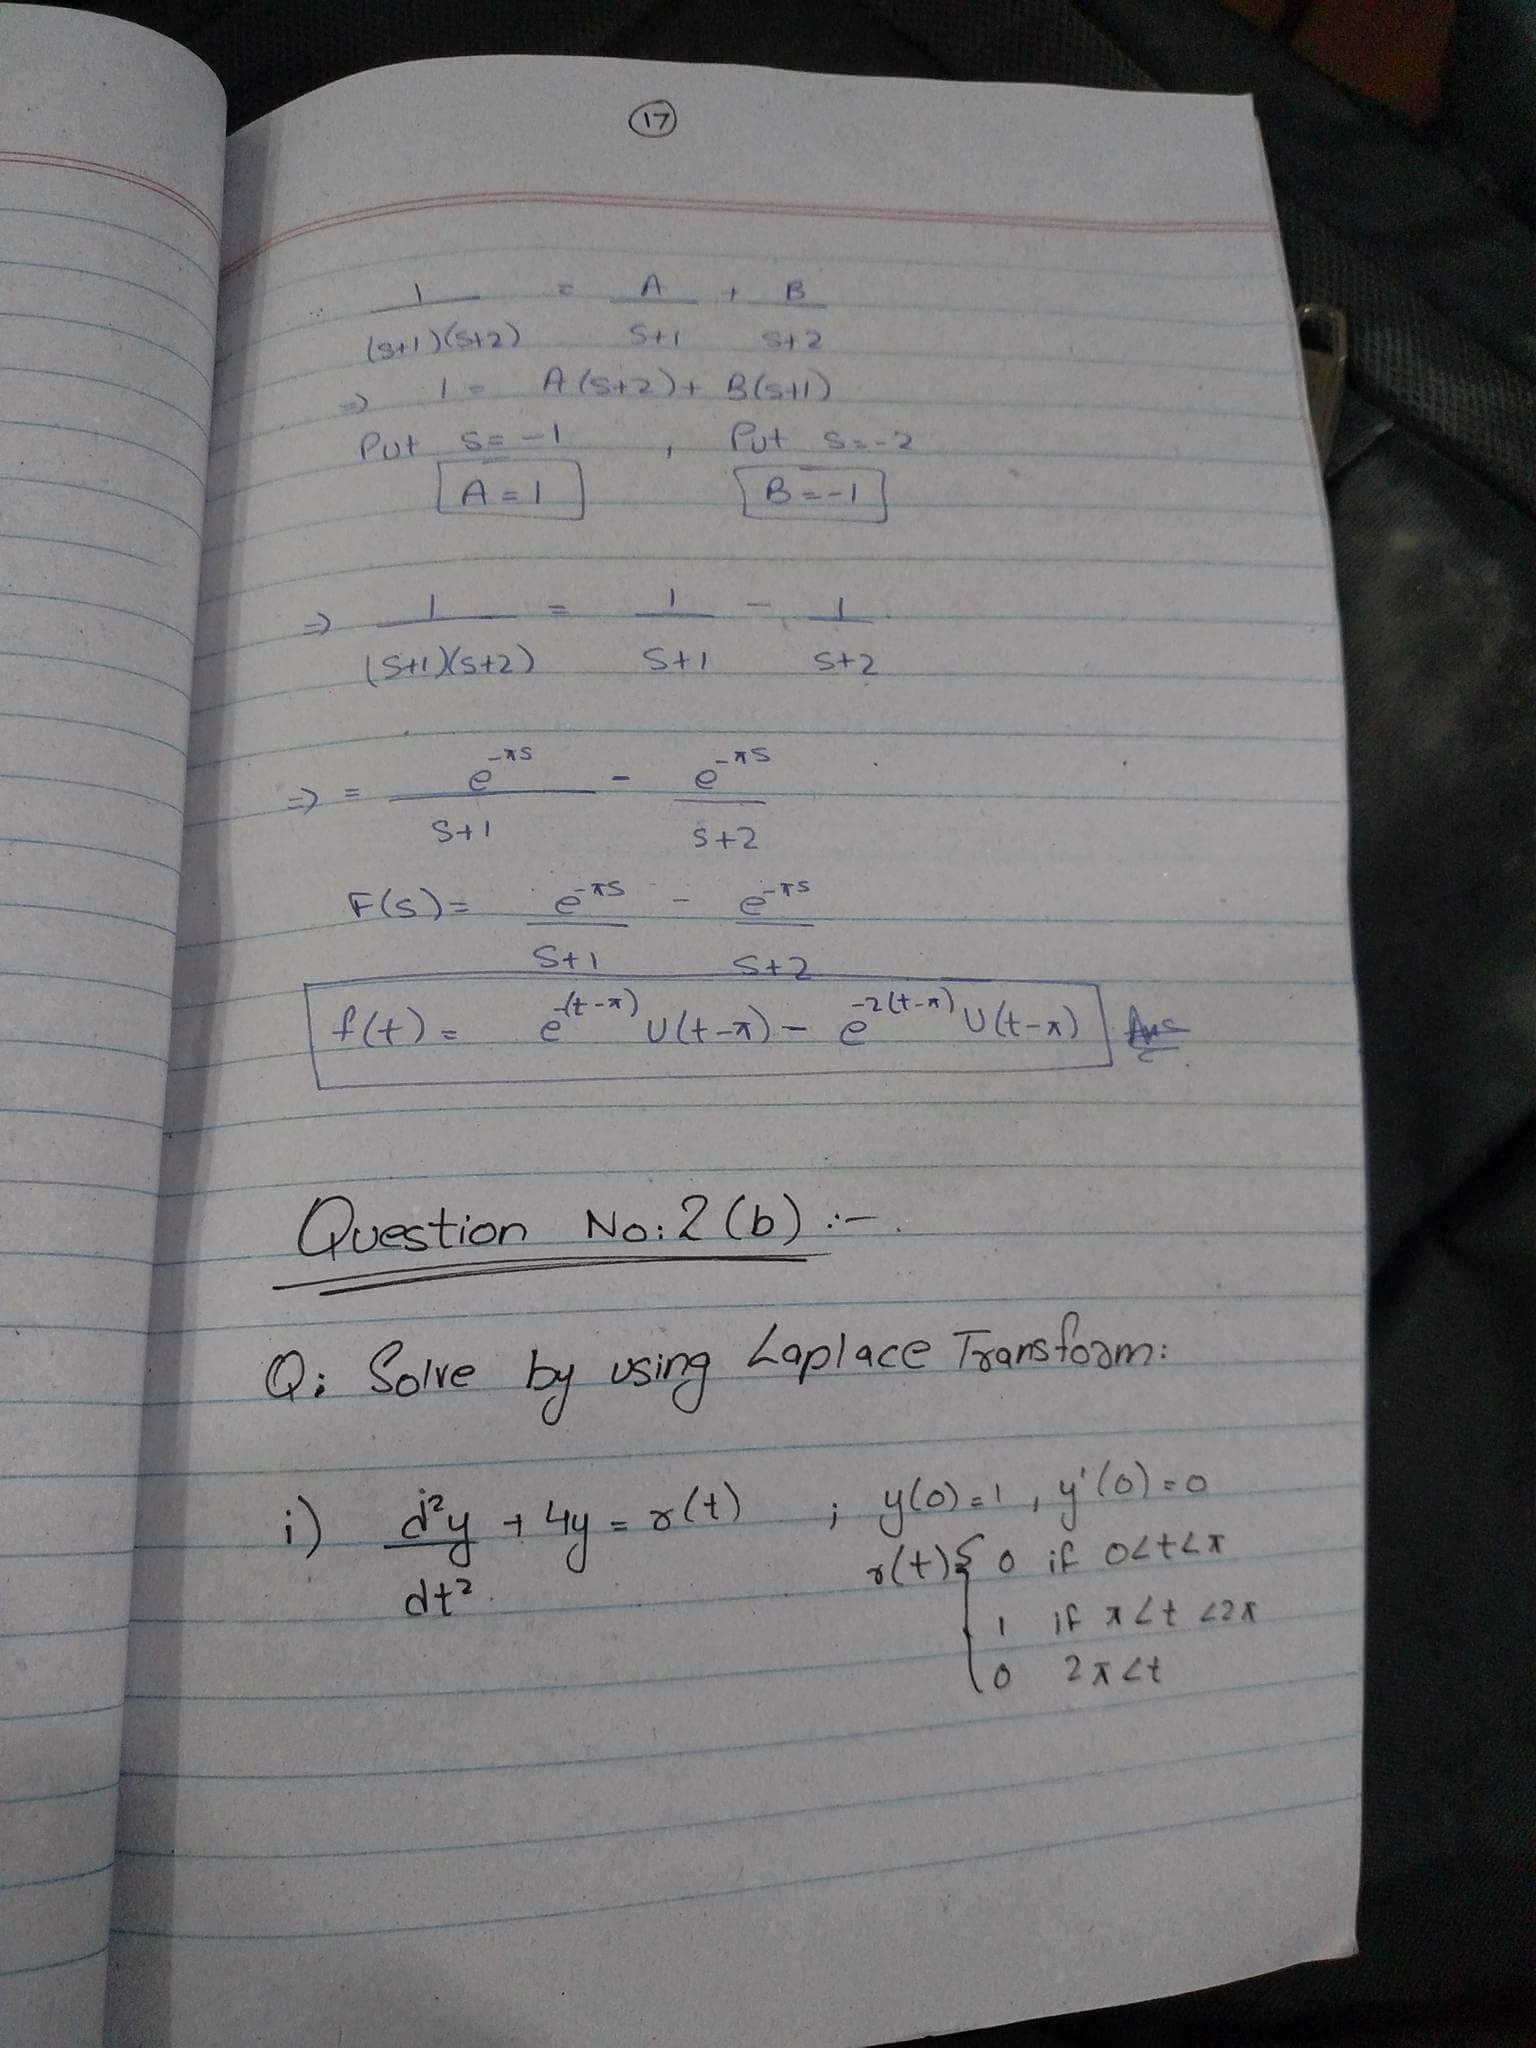 17
1 = A + B
(s+1)(s+2) s+1 s+2
⇒ 1 = A(s+2) + B(s+1)
Put s = -1 , Put s = -2
A = 1 B = -1
⇒ 1 = 1 - 1
(s+1)(s+2) s+1 s+2
⇒ = e^-πs - e^-πs
s+1 s+2
F(s) = e^-πs - e^-πs
s+1 s+2
f(t) = e^-(t-π) U(t-π) - e^-2(t-π) U(t-π) Ans
Question No: 2 (b) :-
Q: Solve by using Laplace Transform:
i) d²y + 4y = r(t) ; y(0) = 1 , y'(0) = 0
dt² r(t) { 0 if 0<t<π
1 if π<t<2π
0 2π<t